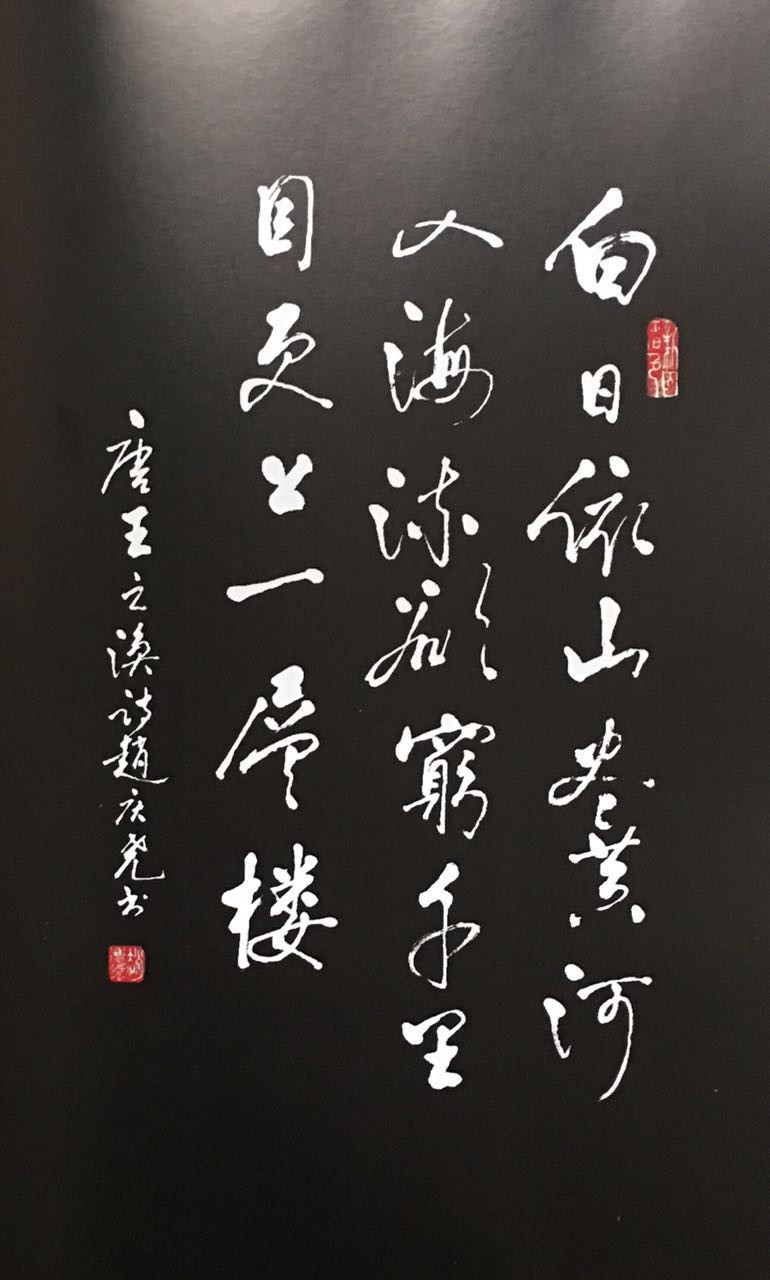 白日依山尽黄河
入海流欲窮千里
目更上一层楼
唐王之涣诗趙庆尧书